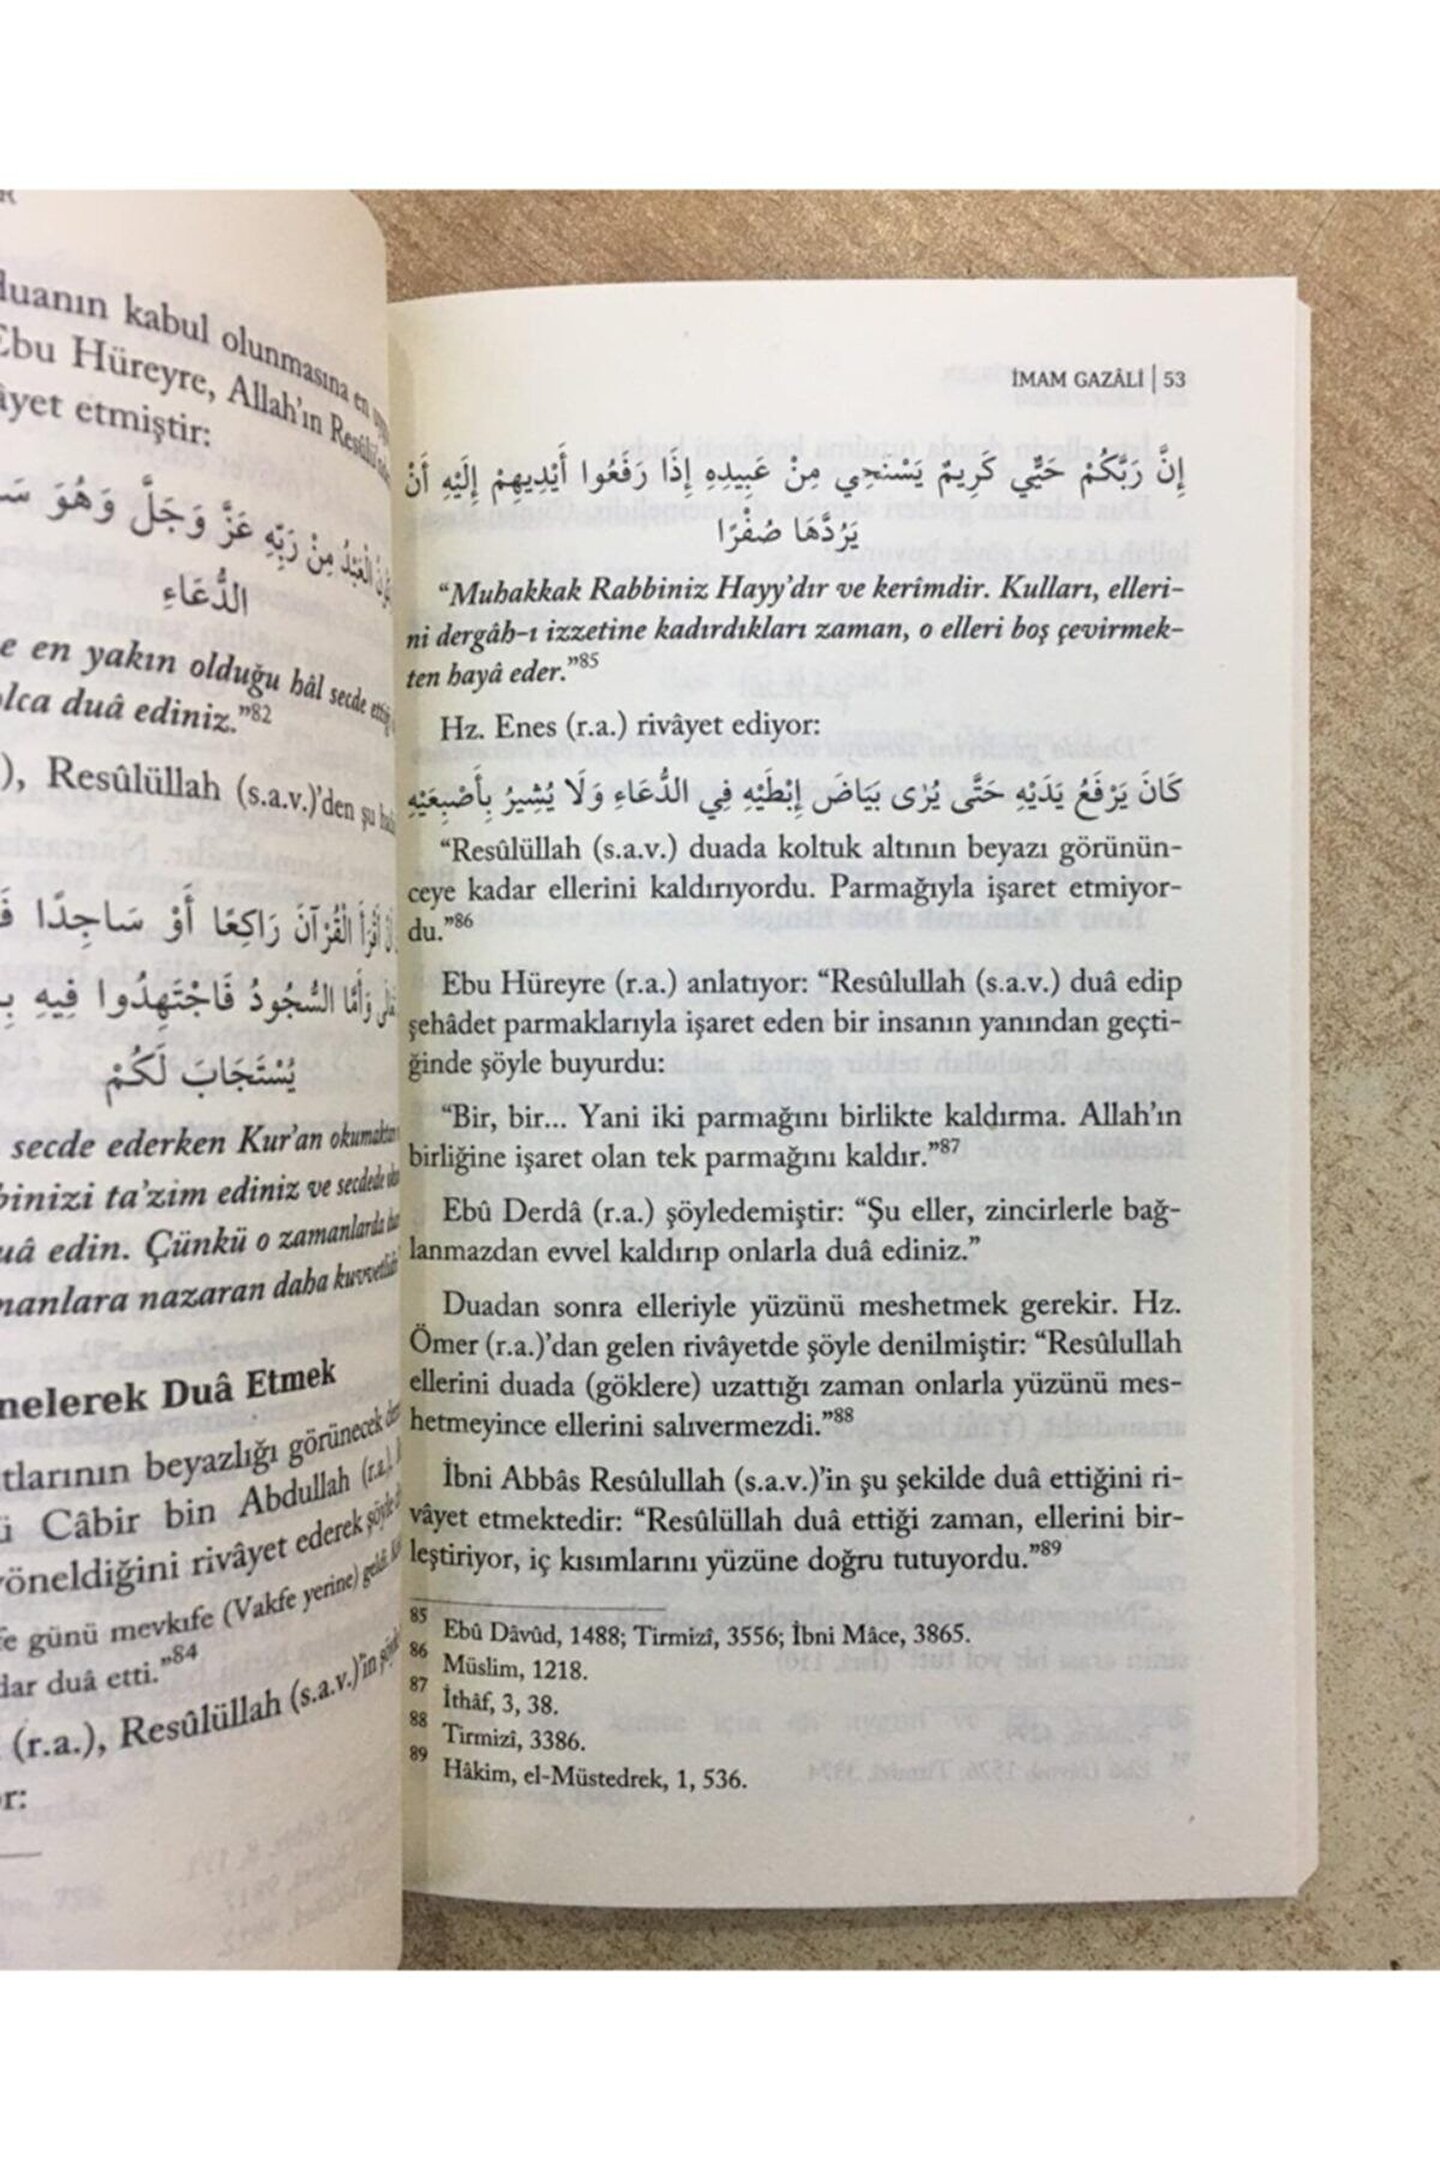 duanın kabul olunmasına en
Ebu Hüreyre, Allah'ın
etmiştir:
الْعَبْدُ مِنْ رَبِّهِ عَزَّ وَجَلَّ وَهُوَ
الدُّعَاءِ
e en yakın olduğu hâl secde
duâ ediniz."82
), Resûlüllah (s.a.v.)'den şu
أَقْرَأَ الْقُرْآنَ رَاكِعًا أَوْ سَاجِدًا
وَأَمَّا السُّجُودُ فَاجْتَهِدُوا فِيهِ
يُسْتَجَابَ لَكُمْ
secde ederken Kur'an
ta'zim ediniz ve secdede
edin. Çünkü o zamanlarda
nazaran daha
nelerek Duâ Etmek
beyazlığı görünecek
Câbir bin Abdullah (r.a.),
yöneldiğini rivâyet ederek şöyle
günü mevkıfe (Vakfe yerine)
duâ etti."84
(r.a.), Resûlüllah (s.a.v.)'in
İMAM GAZÂLİ | 53
إِنَّ رَبَّكُمْ حَيٌّ كَرِيمٌ يَسْتَحِي مِنْ عَبِيدِهِ إِذَا رَفَعُوا أَيْدِيهِمْ إِلَيْهِ أَنْ
يَرُدَّهَا صُفْرًا
"Muhakkak Rabbiniz Hayy'dır ve kerîmdir. Kulları, elleri-
ni dergâh-ı izzetine kadırdıkları zaman, o elleri boş çevirmek-
ten hayâ eder."85
Hz. Enes (r.a.) rivâyet ediyor:
كَانَ يَرْفَعُ يَدَيْهِ حَتَّى يُرٰى بَيَاضَ إِبْطَيْهِ فِي الدُّعَاءِ وَلَا يُشِيرُ بِأَصْبِعَيْهِ
"Resûlüllah (s.a.v.) duada koltuk altının beyazı görünün-
ceye kadar ellerini kaldırıyordu. Parmağıyla işaret etmiyor-
du."86
Ebu Hüreyre (r.a.) anlatıyor: "Resûlullah (s.a.v.) duâ edip
şehâdet parmaklarıyla işaret eden bir insanın yanından geçti-
ğinde şöyle buyurdu:
"Bir, bir... Yani iki parmağını birlikte kaldırma. Allah'ın
birliğine işaret olan tek parmağını kaldır."87
Ebû Derdâ (r.a.) şöyledemiştir: "Şu eller, zincirlerle bağ-
lanmazdan evvel kaldırıp onlarla duâ ediniz."
Duadan sonra elleriyle yüzünü meshetmek gerekir. Hz.
Ömer (r.a.)'dan gelen rivâyetde şöyle denilmiştir: "Resûlullah
ellerini duada (göklere) uzattığı zaman onlarla yüzünü mes-
hetmeyince ellerini salıvermezdi."88
İbni Abbâs Resûlullah (s.a.v.)'in şu şekilde duâ ettiğini ri-
vâyet etmektedir: "Resûlüllah duâ ettiği zaman, ellerini bir-
leştiriyor, iç kısımlarını yüzüne doğru tutuyordu."89
85 Ebû Dâvûd, 1488; Tirmizî, 3556; İbni Mâce, 3865.
86 Müslim, 1218.
87 İthâf, 3, 38.
88 Tirmizî, 3386.
89 Hâkim, el-Müstedrek, 1, 536.